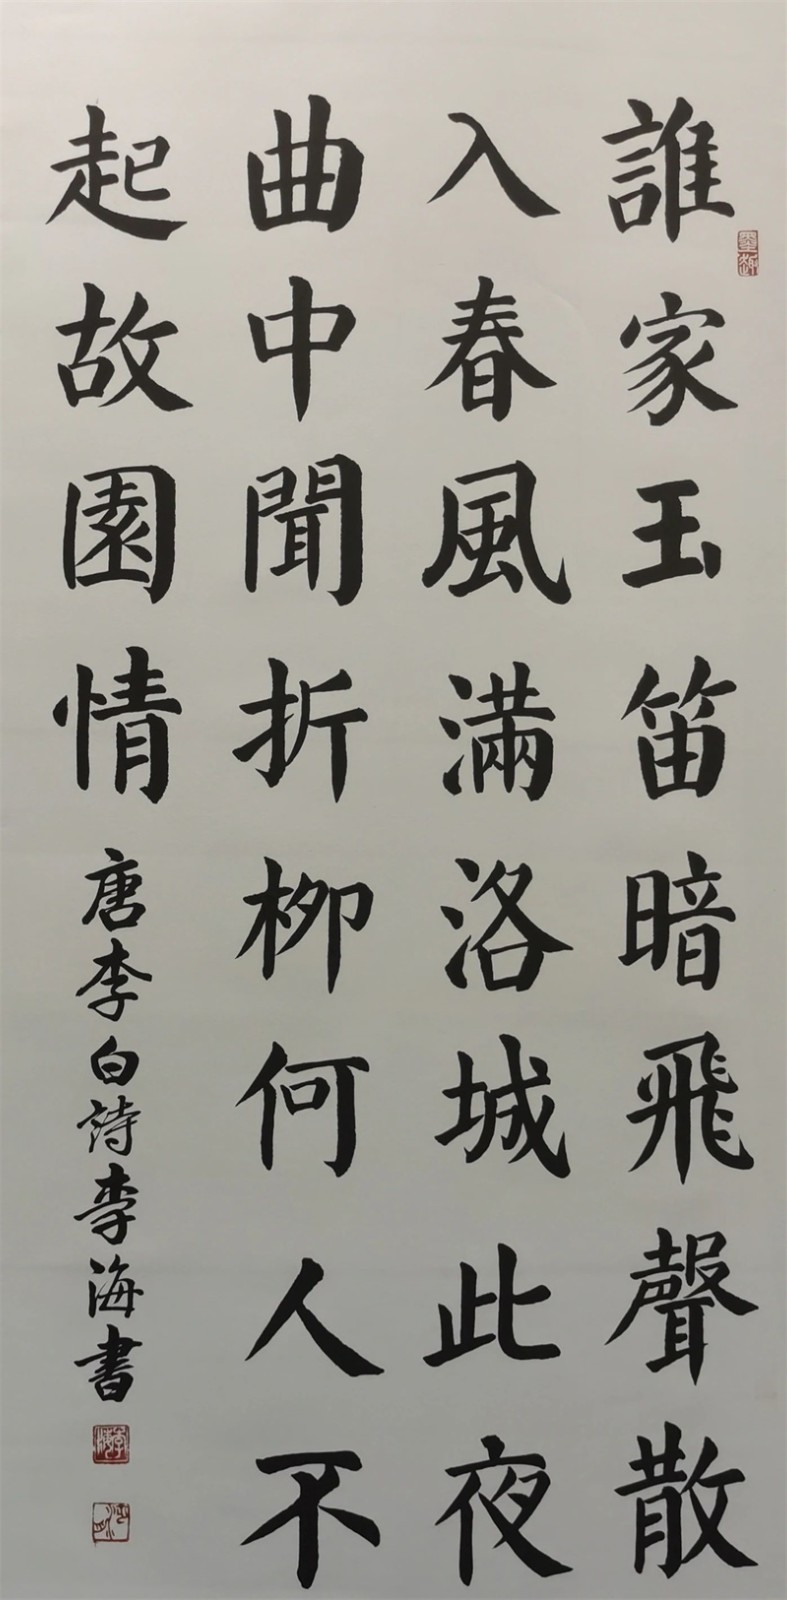 誰家玉笛暗飛聲散
入春風滿洛城此夜
曲中聞折柳何人不
起故園情
唐李白詩李海書
墨趣
李海